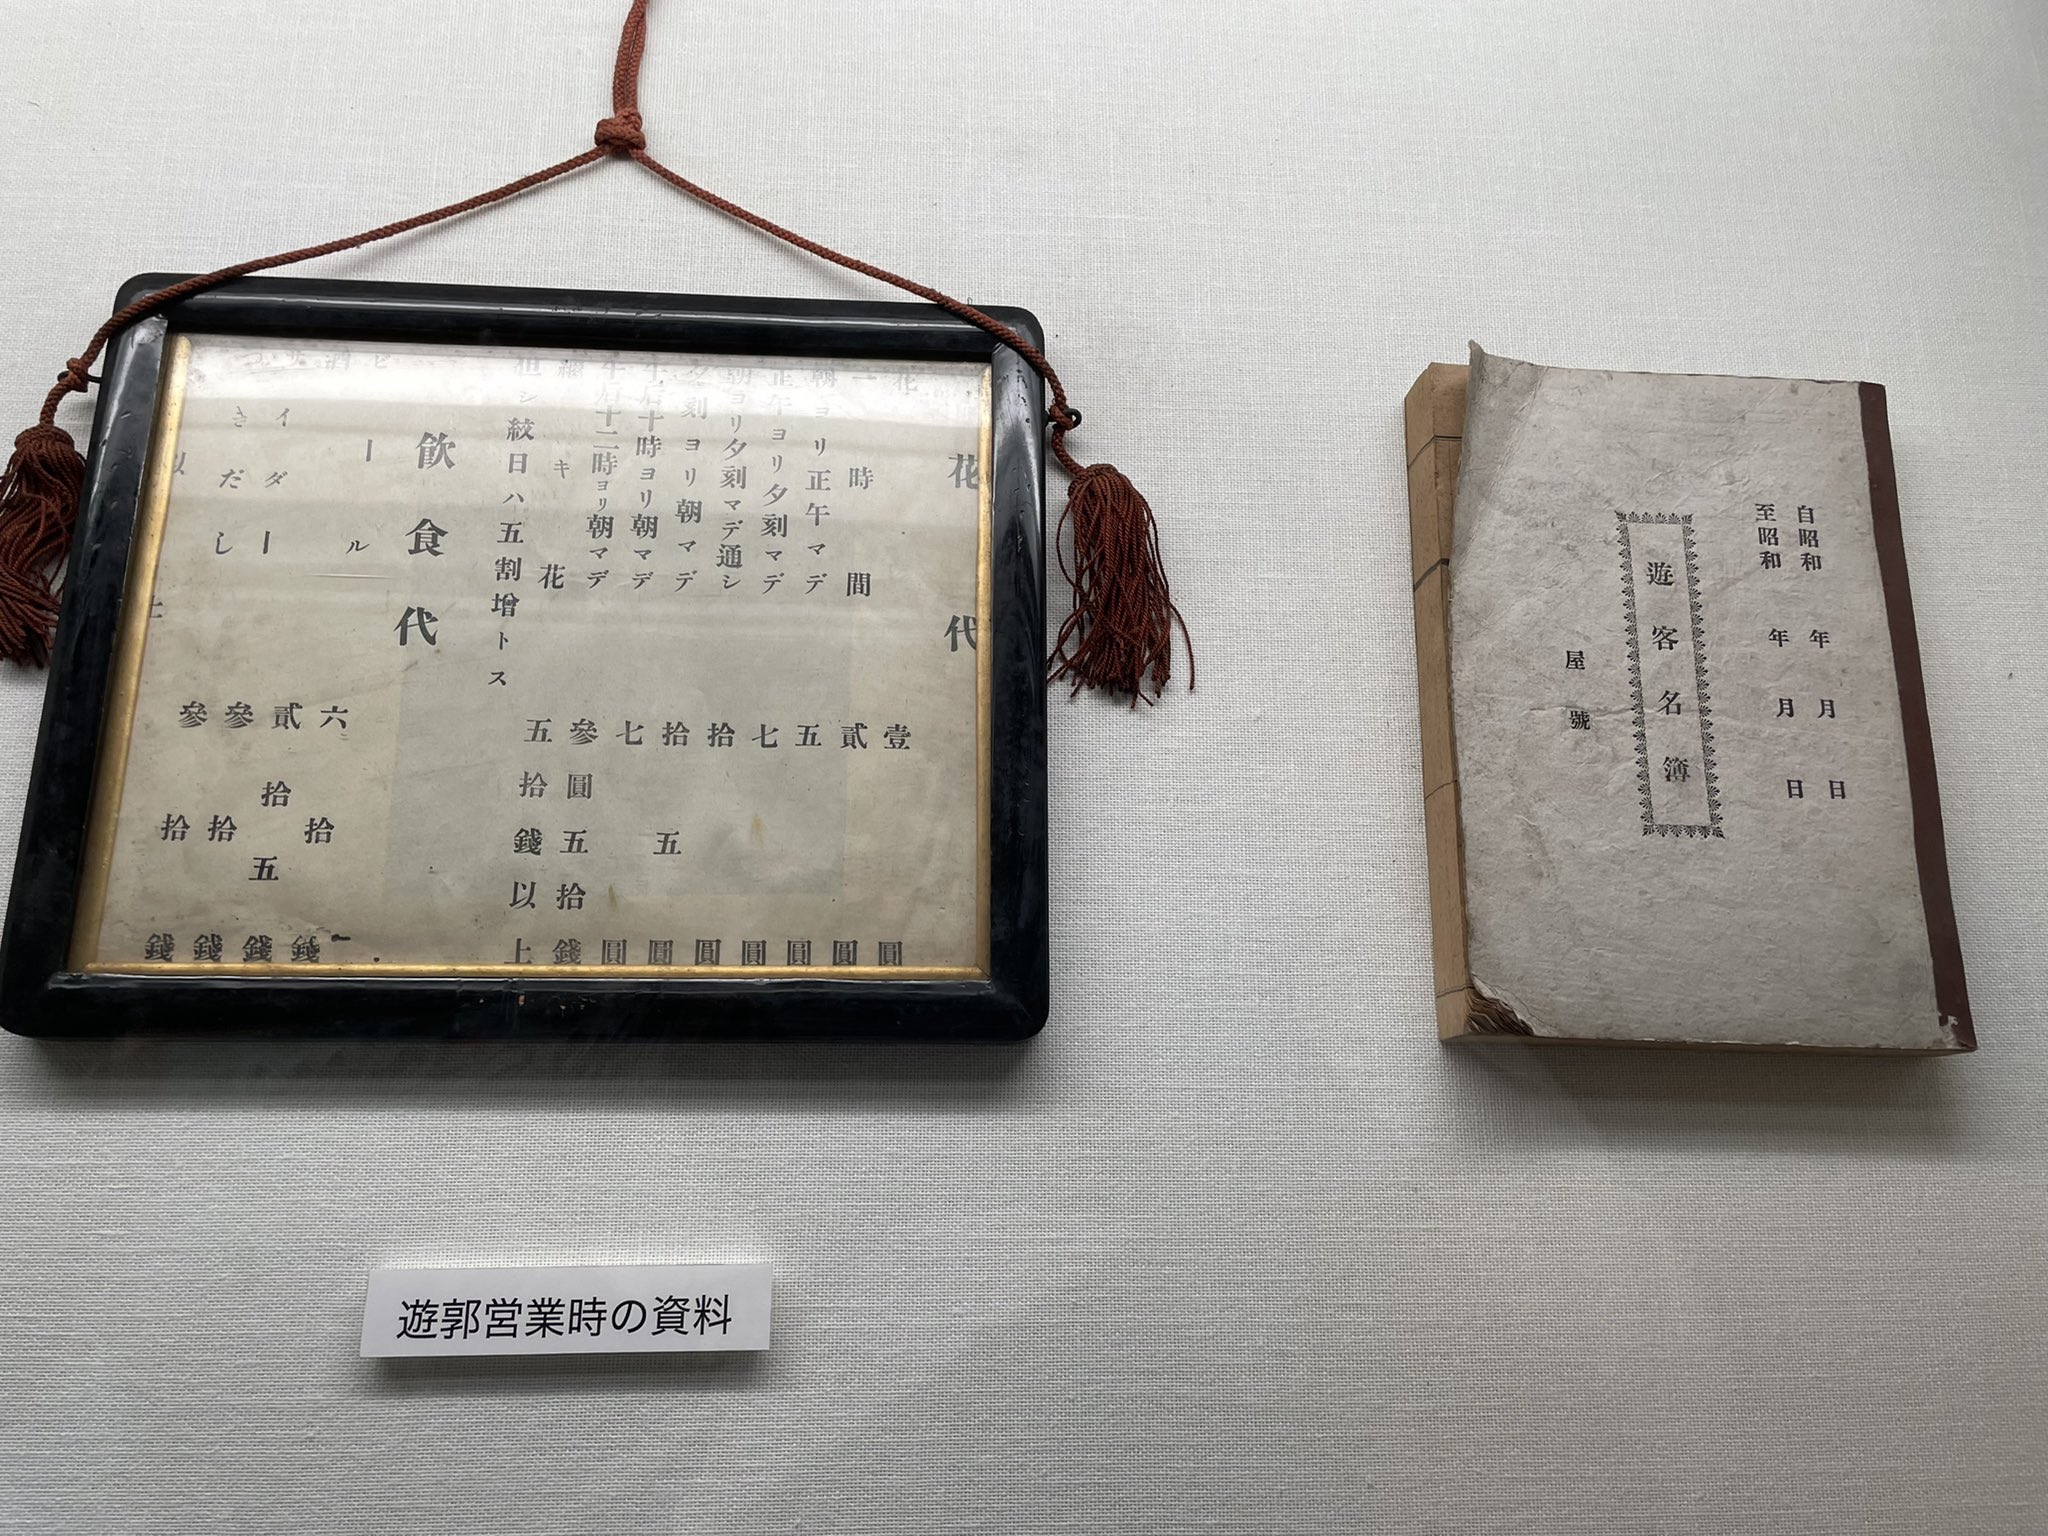 花代
花 壹圓
一時間 貳圓
朝ヨリ正午マデ 五圓
正午ヨリ夕刻マデ 七圓
朝ヨリ夕刻マデ通シ 拾圓
夕刻ヨリ朝マデ 拾五圓
午后十時ヨリ朝マデ 七圓
午后十二時ヨリ朝マデ 參圓五拾錢
キ花 五拾錢以上
但シ紋日ハ五割增トス
飲食代
ビール 六拾錢
酒 貳拾五錢
サイダー 參拾錢
つきだし 參拾錢
以上
自昭和 年 月 日
至昭和 年 月 日
遊客名簿
屋號
遊郭営業時の資料